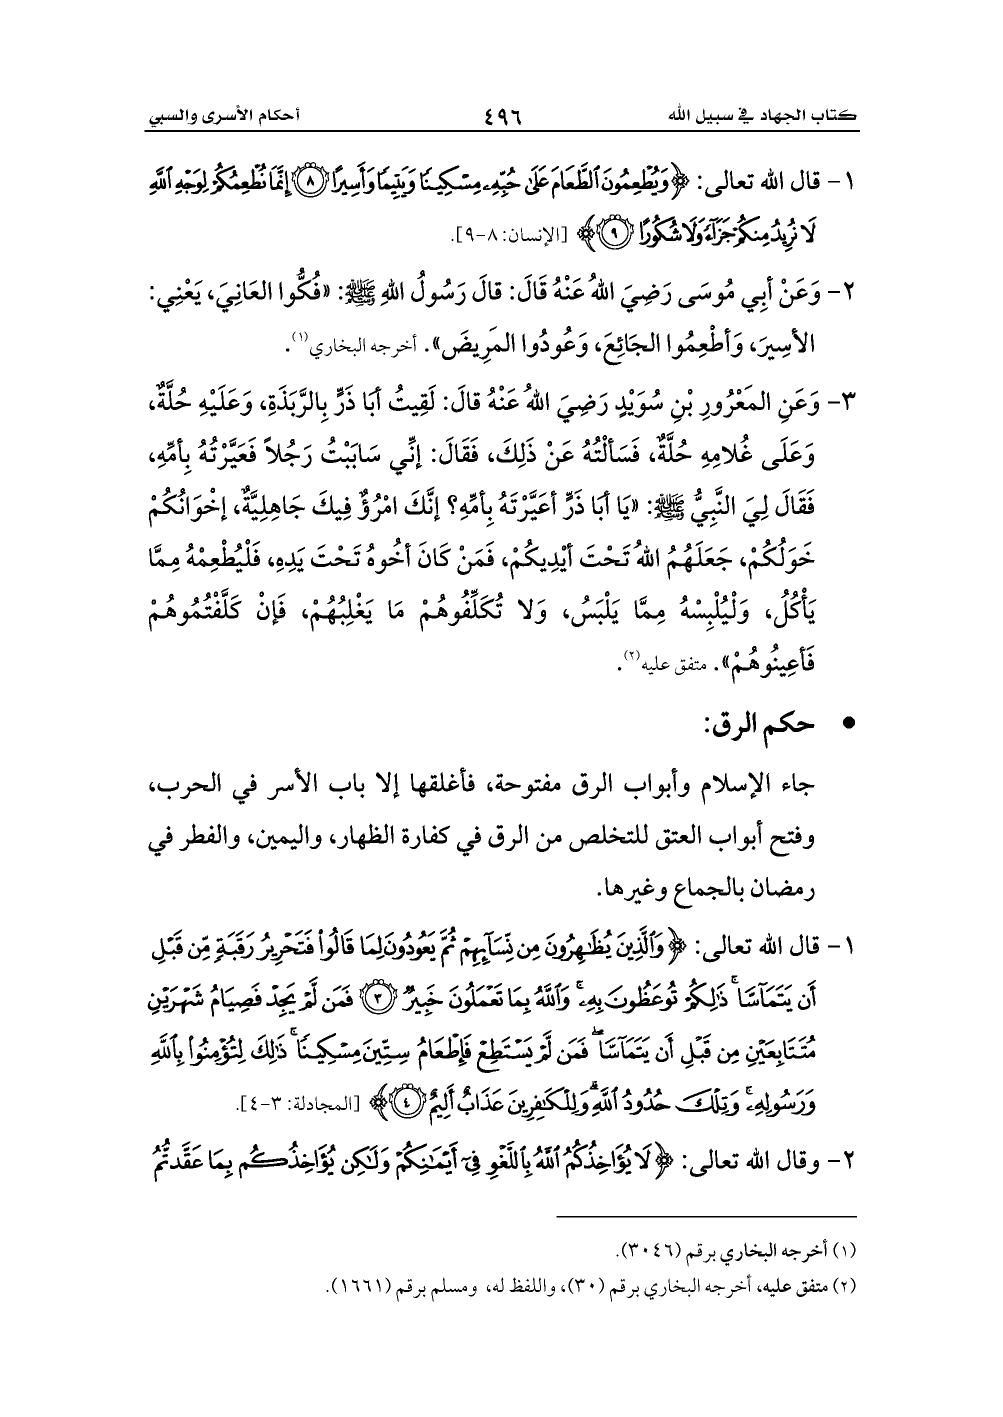 كتاب الجهاد في سبيل الله ٤٩٦ أحكام الأسرى والسبي
١- قال الله تعالى: ﴿وَيُطْعِمُونَ ٱلطَّعَامَ عَلَىٰ حُبِّهِۦ مِسْكِينًا وَيَتِيمًا وَأَسِيرًا ٨ إِنَّمَا نُطْعِمُكُمْ لِوَجْهِ ٱللَّهِ
لَا نُرِيدُ مِنكُمْ جَزَآءً وَلَا شُكُورًا ٩﴾ [الإنسان: ٨-٩].
٢- وَعَنْ أبِي مُوسَى رَضِيَ اللهُ عَنْهُ قَالَ: قالَ رَسُولُ اللهِ ﷺ: «فُكُّوا العَانِيَ، يَعْنِي:
الأسِيرَ، وَأطْعِمُوا الجَائِعَ، وَعُودُوا المَرِيضَ». أخرجه البخاري(١).
٣- وَعَنِ المَعْرُورِ بْنِ سُوَيْدٍ رَضِيَ اللهُ عَنْهُ قالَ: لَقِيتُ أبَا ذَرٍّ بِالرَّبَذَةِ، وَعَلَيْهِ حُلَّةٌ،
وَعَلَى غُلامِهِ حُلَّةٌ، فَسَألْتُهُ عَنْ ذَلِكَ، فَقَالَ: إنِّي سَابَبْتُ رَجُلاً فَعَيَّرْتُهُ بِأمِّهِ،
فَقَالَ لِيَ النَّبِيُّ ﷺ: «يَا أبَا ذَرٍّ أعَيَّرْتَهُ بِأمِّهِ؟ إنَّكَ امْرُؤٌ فِيكَ جَاهِلِيَّةٌ، إخْوَانُكُمْ
خَوَلُكُمْ، جَعَلَهُمُ اللهُ تَحْتَ أيْدِيكُمْ، فَمَنْ كَانَ أخُوهُ تَحْتَ يَدِهِ، فَلْيُطْعِمْهُ مِمَّا
يَأْكُلُ، وَلْيُلْبِسْهُ مِمَّا يَلْبَسُ، وَلا تُكَلِّفُوهُمْ مَا يَغْلِبُهُمْ، فَإنْ كَلَّفْتُمُوهُمْ
فَأعِينُوهُمْ». متفق عليه(٢).
• حكم الرق:
جاء الإسلام وأبواب الرق مفتوحة، فأغلقها إلا باب الأسر في الحرب،
وفتح أبواب العتق للتخلص من الرق في كفارة الظهار، واليمين، والفطر في
رمضان بالجماع وغيرها.
١- قال الله تعالى: ﴿وَٱلَّذِينَ يُظَٰهِرُونَ مِن نِّسَآئِهِمْ ثُمَّ يَعُودُونَ لِمَا قَالُوا۟ فَتَحْرِيرُ رَقَبَةٍ مِّن قَبْلِ
أَن يَتَمَآسَّا ۚ ذَٰلِكُمْ تُوعَظُونَ بِهِۦ ۚ وَٱللَّهُ بِمَا تَعْمَلُونَ خَبِيرٌ ٣ فَمَن لَّمْ يَجِدْ فَصِيَامُ شَهْرَيْنِ
مُتَتَابِعَيْنِ مِن قَبْلِ أَن يَتَمَآسَّا ۖ فَمَن لَّمْ يَسْتَطِعْ فَإِطْعَامُ سِتِّينَ مِسْكِينًا ۚ ذَٰلِكَ لِتُؤْمِنُوا۟ بِٱللَّهِ
وَرَسُولِهِۦ ۚ وَتِلْكَ حُدُودُ ٱللَّهِ ۗ وَلِلْكَٰفِرِينَ عَذَابٌ أَلِيمٌ ٤﴾ [المجادلة: ٣-٤].
٢- وقال الله تعالى: ﴿لَا يُؤَاخِذُكُمُ ٱللَّهُ بِٱللَّغْوِ فِىٓ أَيْمَٰنِكُمْ وَلَٰكِن يُؤَاخِذُكُم بِمَا عَقَّدتُّمُ
(١) أخرجه البخاري برقم (٣٠٤٦).
(٢) متفق عليه، أخرجه البخاري برقم (٣٠)، واللفظ له، ومسلم برقم (١٦٦١).